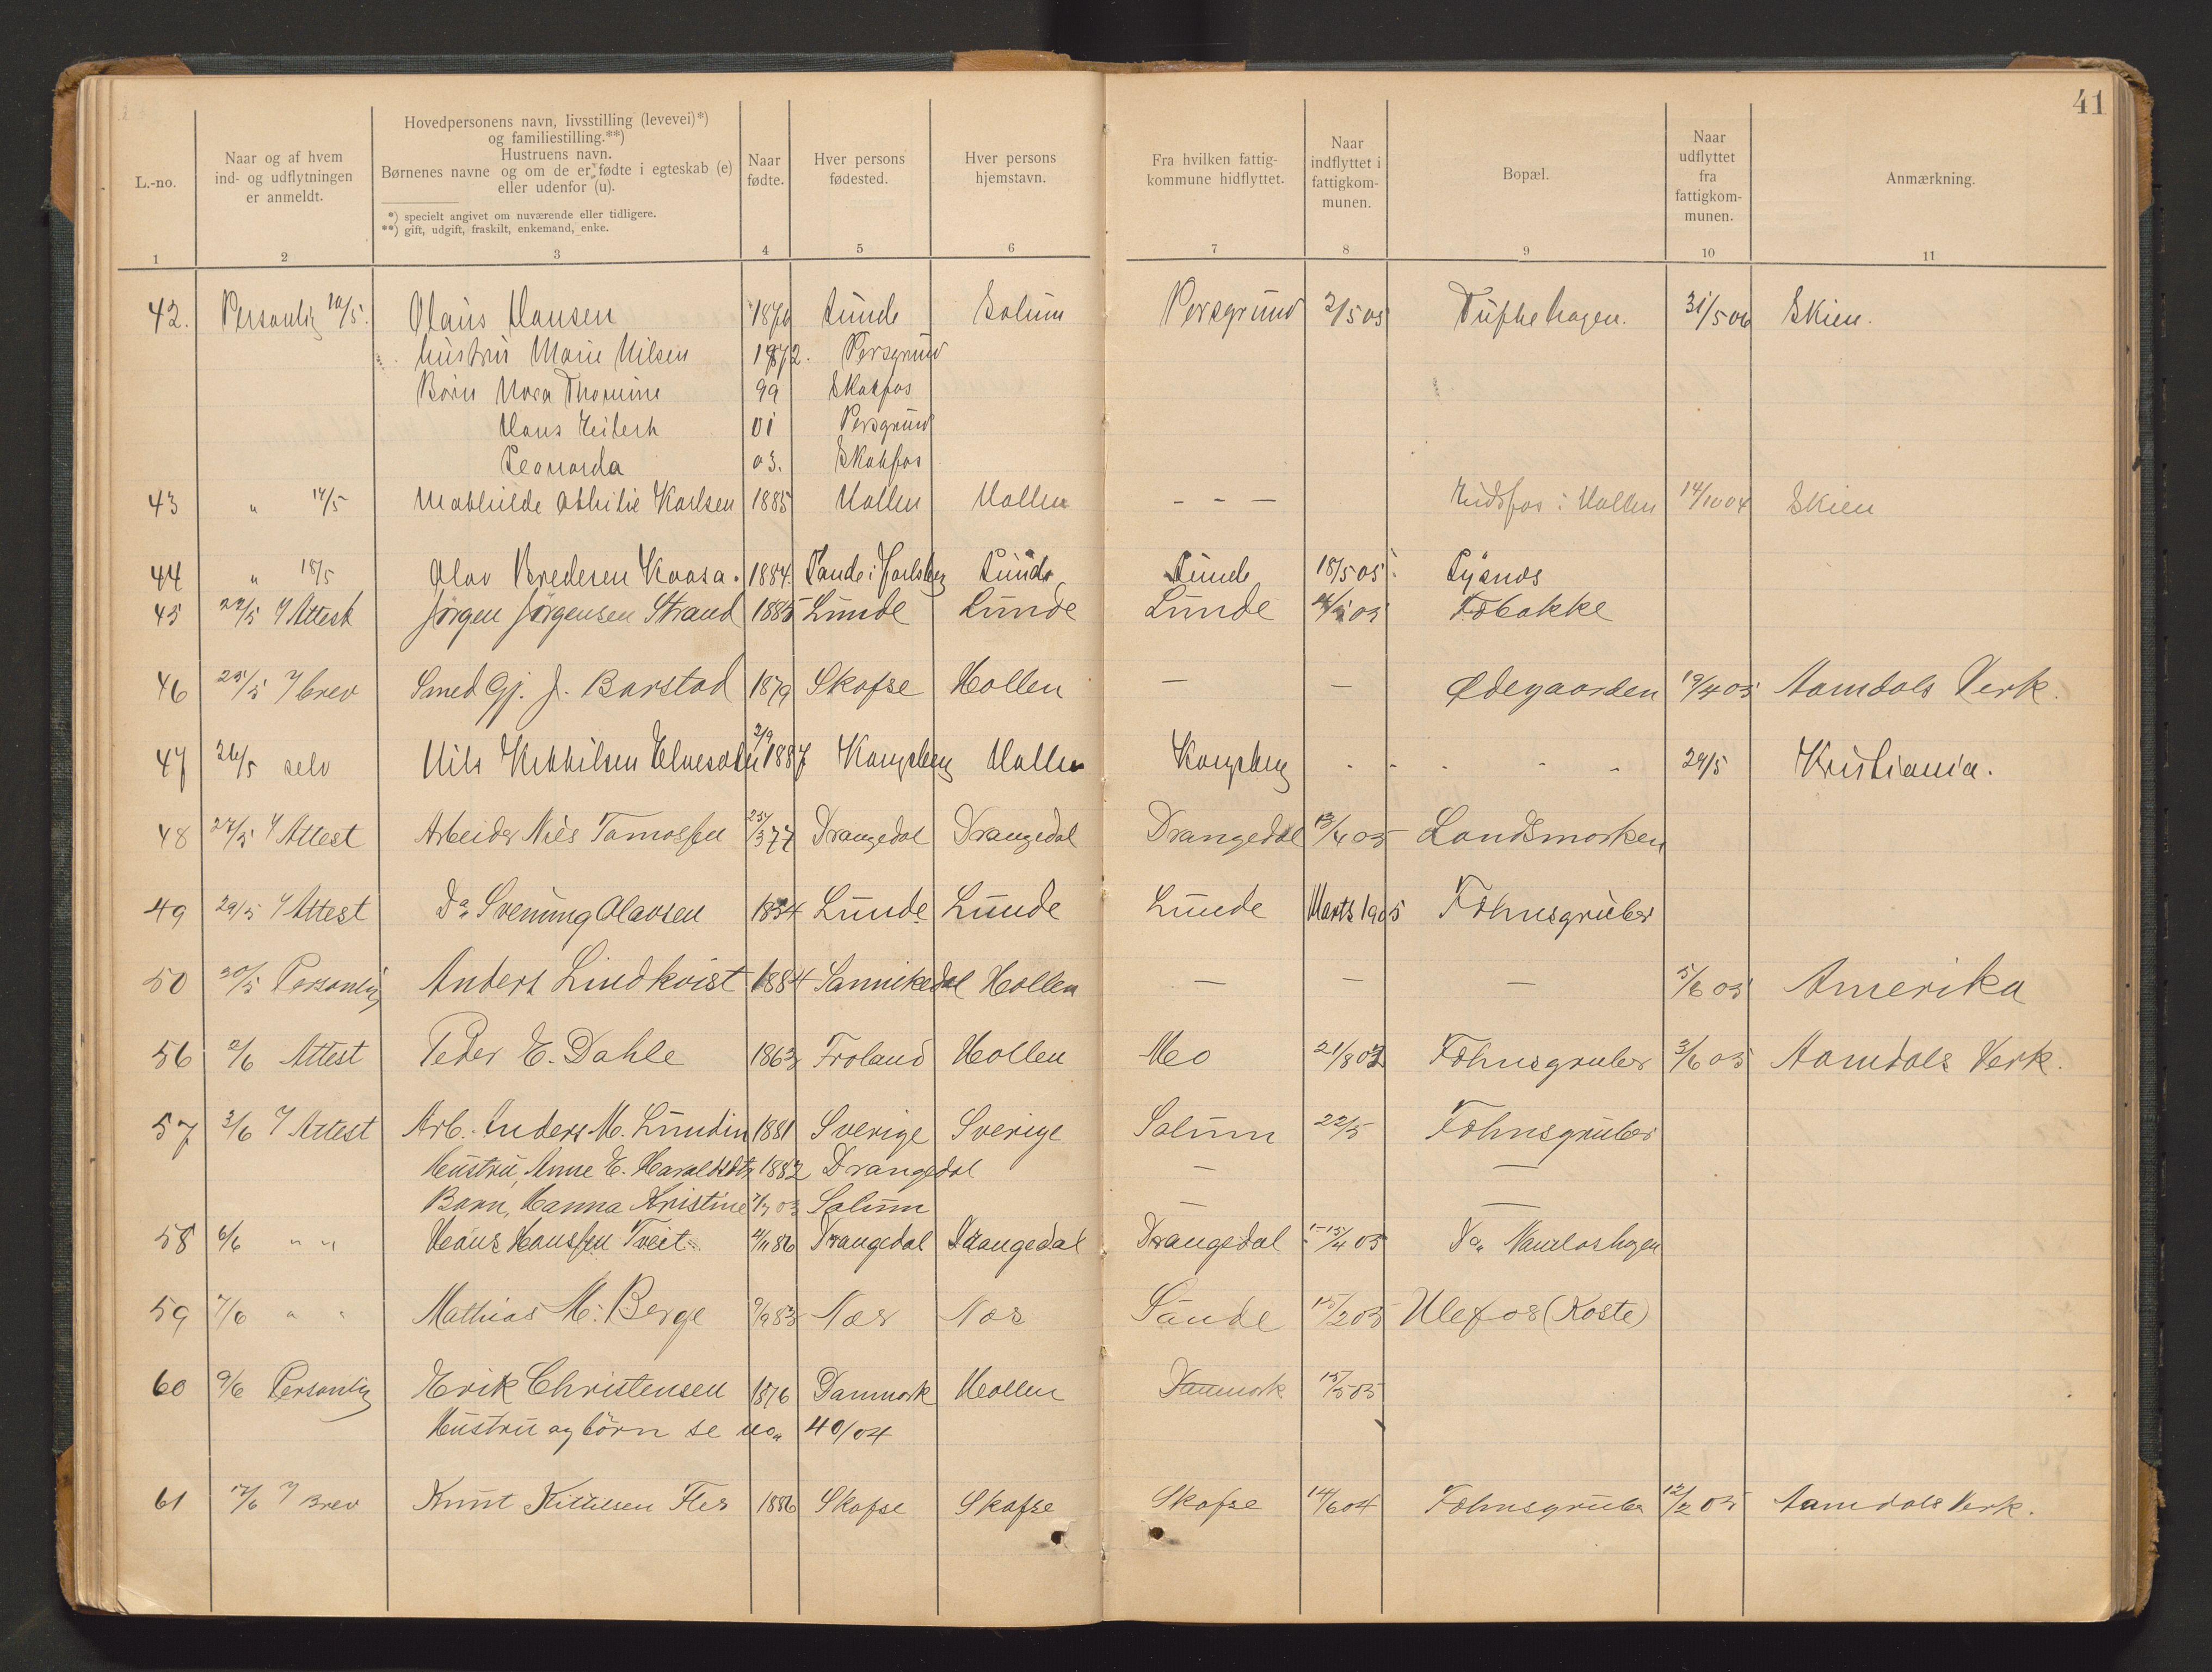 41
L.-no.
Naar og af hvem ind- og udflytningen er anmeldt.
Hovedpersonens navn, livsstilling (levevei)*) og familiestilling.**)
Hustruens navn.
Børnenes navne og om de er fødte i egteskab (e) eller udenfor (u).
*) specielt angivet om nuværende eller tidligere.
**) gift, udgift, fraskilt, enkemand, enke.
Naar fødte.
Hver persons fødested.
Hver persons hjemstavn.
Fra hvilken fattigkommune hidflyttet.
Naar indflyttet i fattigkommunen.
Bopæl.
Naar udflyttet fra fattigkommunen.
Anmærkning.
1 2 3 4 5 6 7 8 9 10 11
42. Personlig 10/5. Olaus Hansen 1870 Lunde Solum Porsgrund 2/5 05 Tuftehagen. 31/5 06 Skien.
hustru Marie Nilsen 1872. Porsgrund
Børn Nora Thomine 99 Skotfos
Hans 01 Porsgrund
Leonarda 03. Skotfos
43 " 14/5 Mathilde Othilie Karlsen 1885 Hollen Hollen - - - Eidsfos i Hollen 14/10 04 Skien
44 " 18/5 Olav Bredesen Kaasa. 1884. Sande i Jarlsberg Lunde Lunde 18/5 05. Lysnes
45 22/5 Attest Jörgen Jörgensen Strand 1885 Lunde Lunde Lunde 05
46 25/5 brev Smed Gj. J. Barstad 1879 Skafse Hollen — — Ødegaarden 19/4 05 Aamdals Verk.
47 26/5 selv Nils Kittilsen 2/9 1887 Kongsberg Hollen Kongsberg - - - - 29/5 Kristiania.
48 27/5 Attest Arbeider Nils Tamossen 25/3 77 Drangedal Drangedal Drangedal 13/4 05 Landsmarken
49 29/5 Attest Do Svenning Olavsen 1854 Lunde Lunde Lunde Marts 1905 Fehnsgruber
50 30/5 Personlig Anders Lindkvist 1884 Sannikedal Hollen — — — 5/6 05 Amerika
56 2/6 Attest Peder E. Dahle 1863 Froland Hollen Mo 21/8 03 Fehnsgruber 3/6 05 Aamdals Verk.
57 3/6 Attest Arb. Anders M. Lundin 1881 Sverige Sverige Solum 22/5 Fehnsgruber
Hustru, Anne E. Haraldsdtr 1882 Drangedal — —
Barn, Hanna Kristine 03 Solum — —
58 6/6 " " Hans Hanssen Tveit 86 Drangedal Drangedal Drangedal 15/4 05 Do
59 7/6 " " Mathias M. Berge 9/9 83 Næs Næs Sande 15/2 05 Ulefos (Koste)
60 9/6 Personlig Erik Christensen 1876 Danmark Hollen Danmark 15/5 05
Hustru og börn se no. 40/04
61 12/6 Brev Knut Kittilsen 1886 Skafse Skafse Skafse 14/6 04 Fehnsgruber 12/2 05 Aamdals Verk.